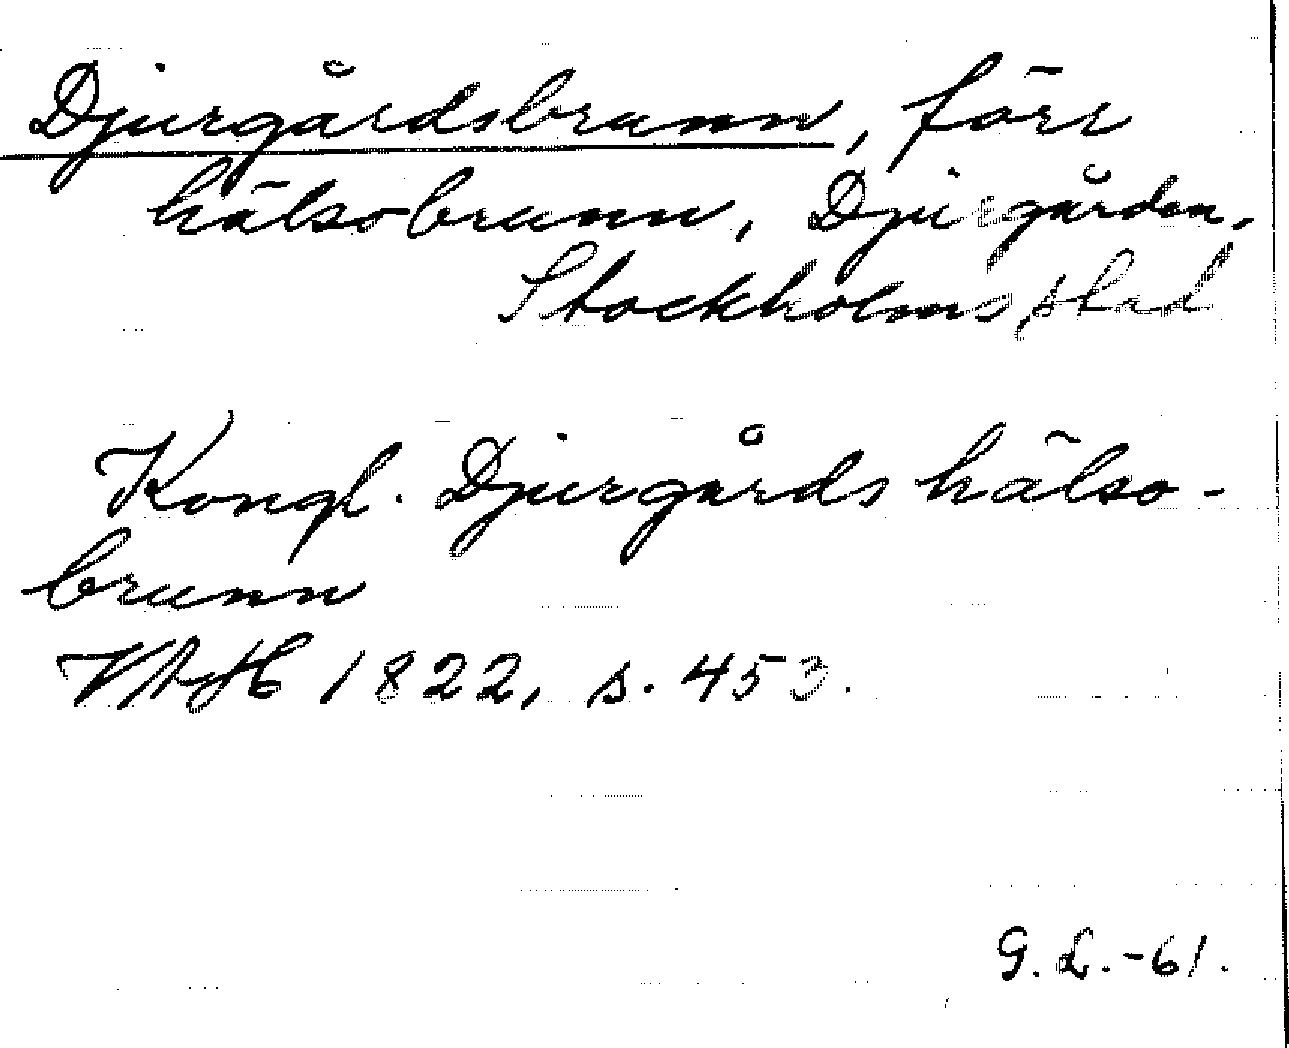 Djurgårdsbrunn, förr
hälsobrunn, Djurgården,
Stockholms stad
Kongl. Djurgårds hälso-
brunn
VAH 1822, s. 453.
G. L. -61.